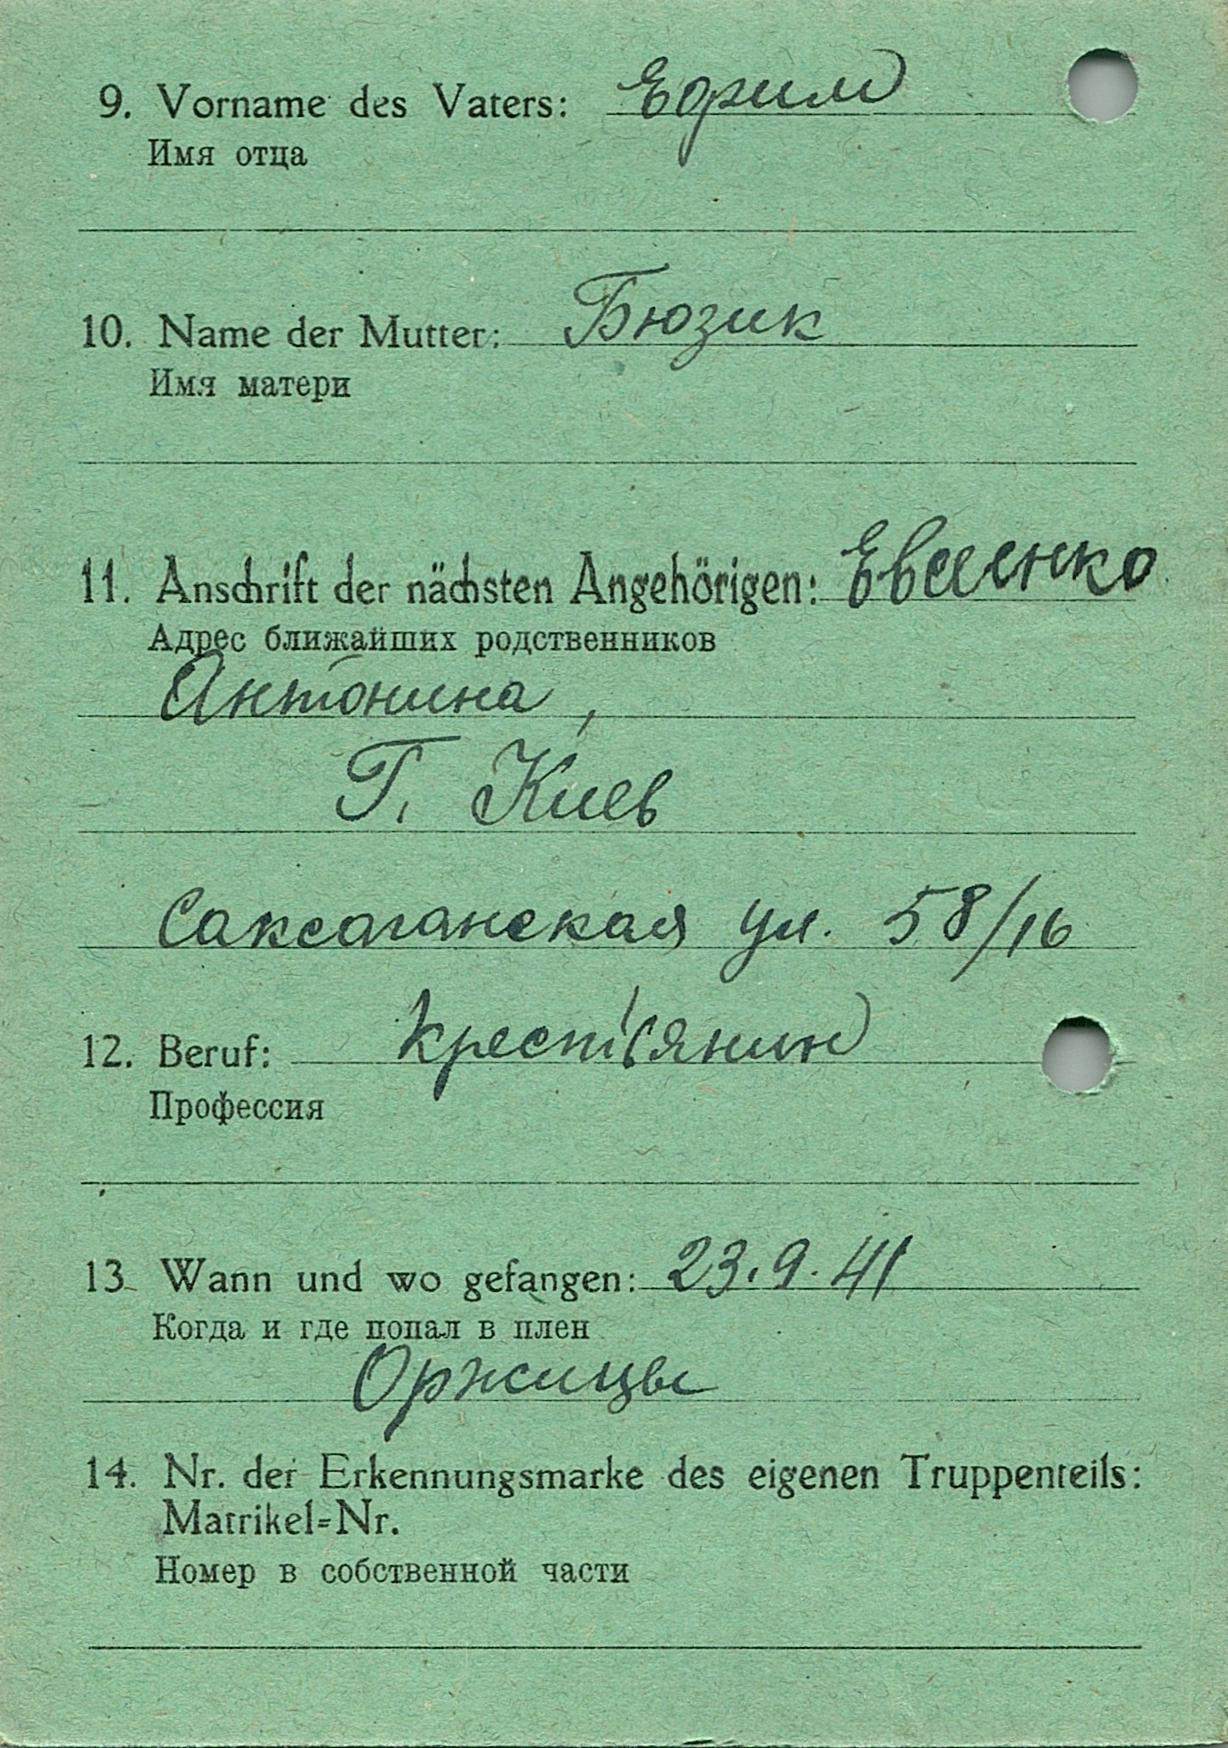 9. Vorname des Vaters: Ефим
Имя отца
10. Name der Mutter: Бюзик
Имя матери
11. Anschrift der nächsten Angehörigen: Евсеенко
Адрес ближайших родственников
Антонина,
Г. Киев
Саксаганская ул. 58/16
12. Beruf: Крестьянин
Профессия
13 Wann und wo gefangen: 23.9.41
Когда и где попал в плен
Оржицы
14. Nr. der Erkennungsmarke des eigenen Truppenteils:
Matrikel=Nr.
Номер в собственной части